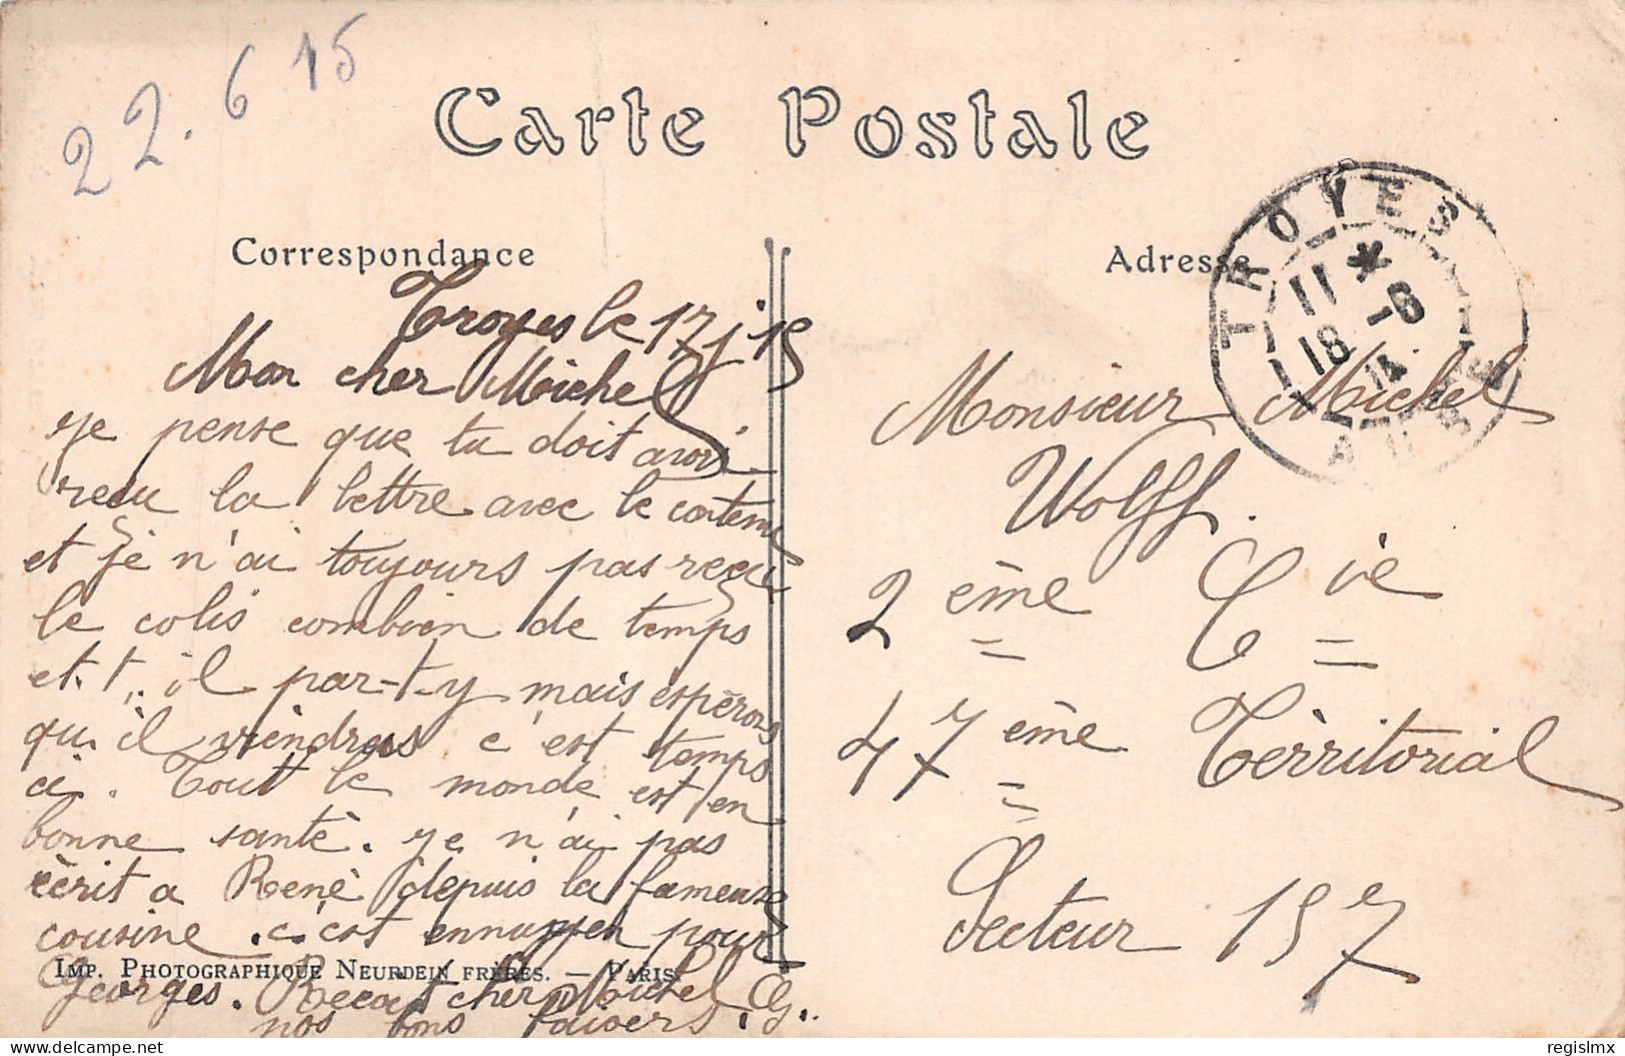 22.6 15
Carte Postale
Correspondance
Adresse
TROYES
11 *
18 -6
AUBE
Troyes le 17 j 15
Mon cher Michel
je pense que tu doit avoir
reçu la lettre avec le contenu
et je n'ai toujours pas reçu
le colis combien de temps
et.t.. il par-t-y mais espèrons
qu. il viendras c'est temps
ci. Tout le monde est en
bonne santè. je n'ai pas
ècrit a Renè depuis la fameuse
cousine . c'est pour
Georges. Recoit cher Michel
nos bons baisers. G..
IMP. PHOTOGRAPHIQUE NEURDEIN FRÈRES. — PARIS.
Monsieur Michel
Wolff.
2 ème Cie
47 ème Tèrritorial
Secteur 157
regislmx
delcampe.net